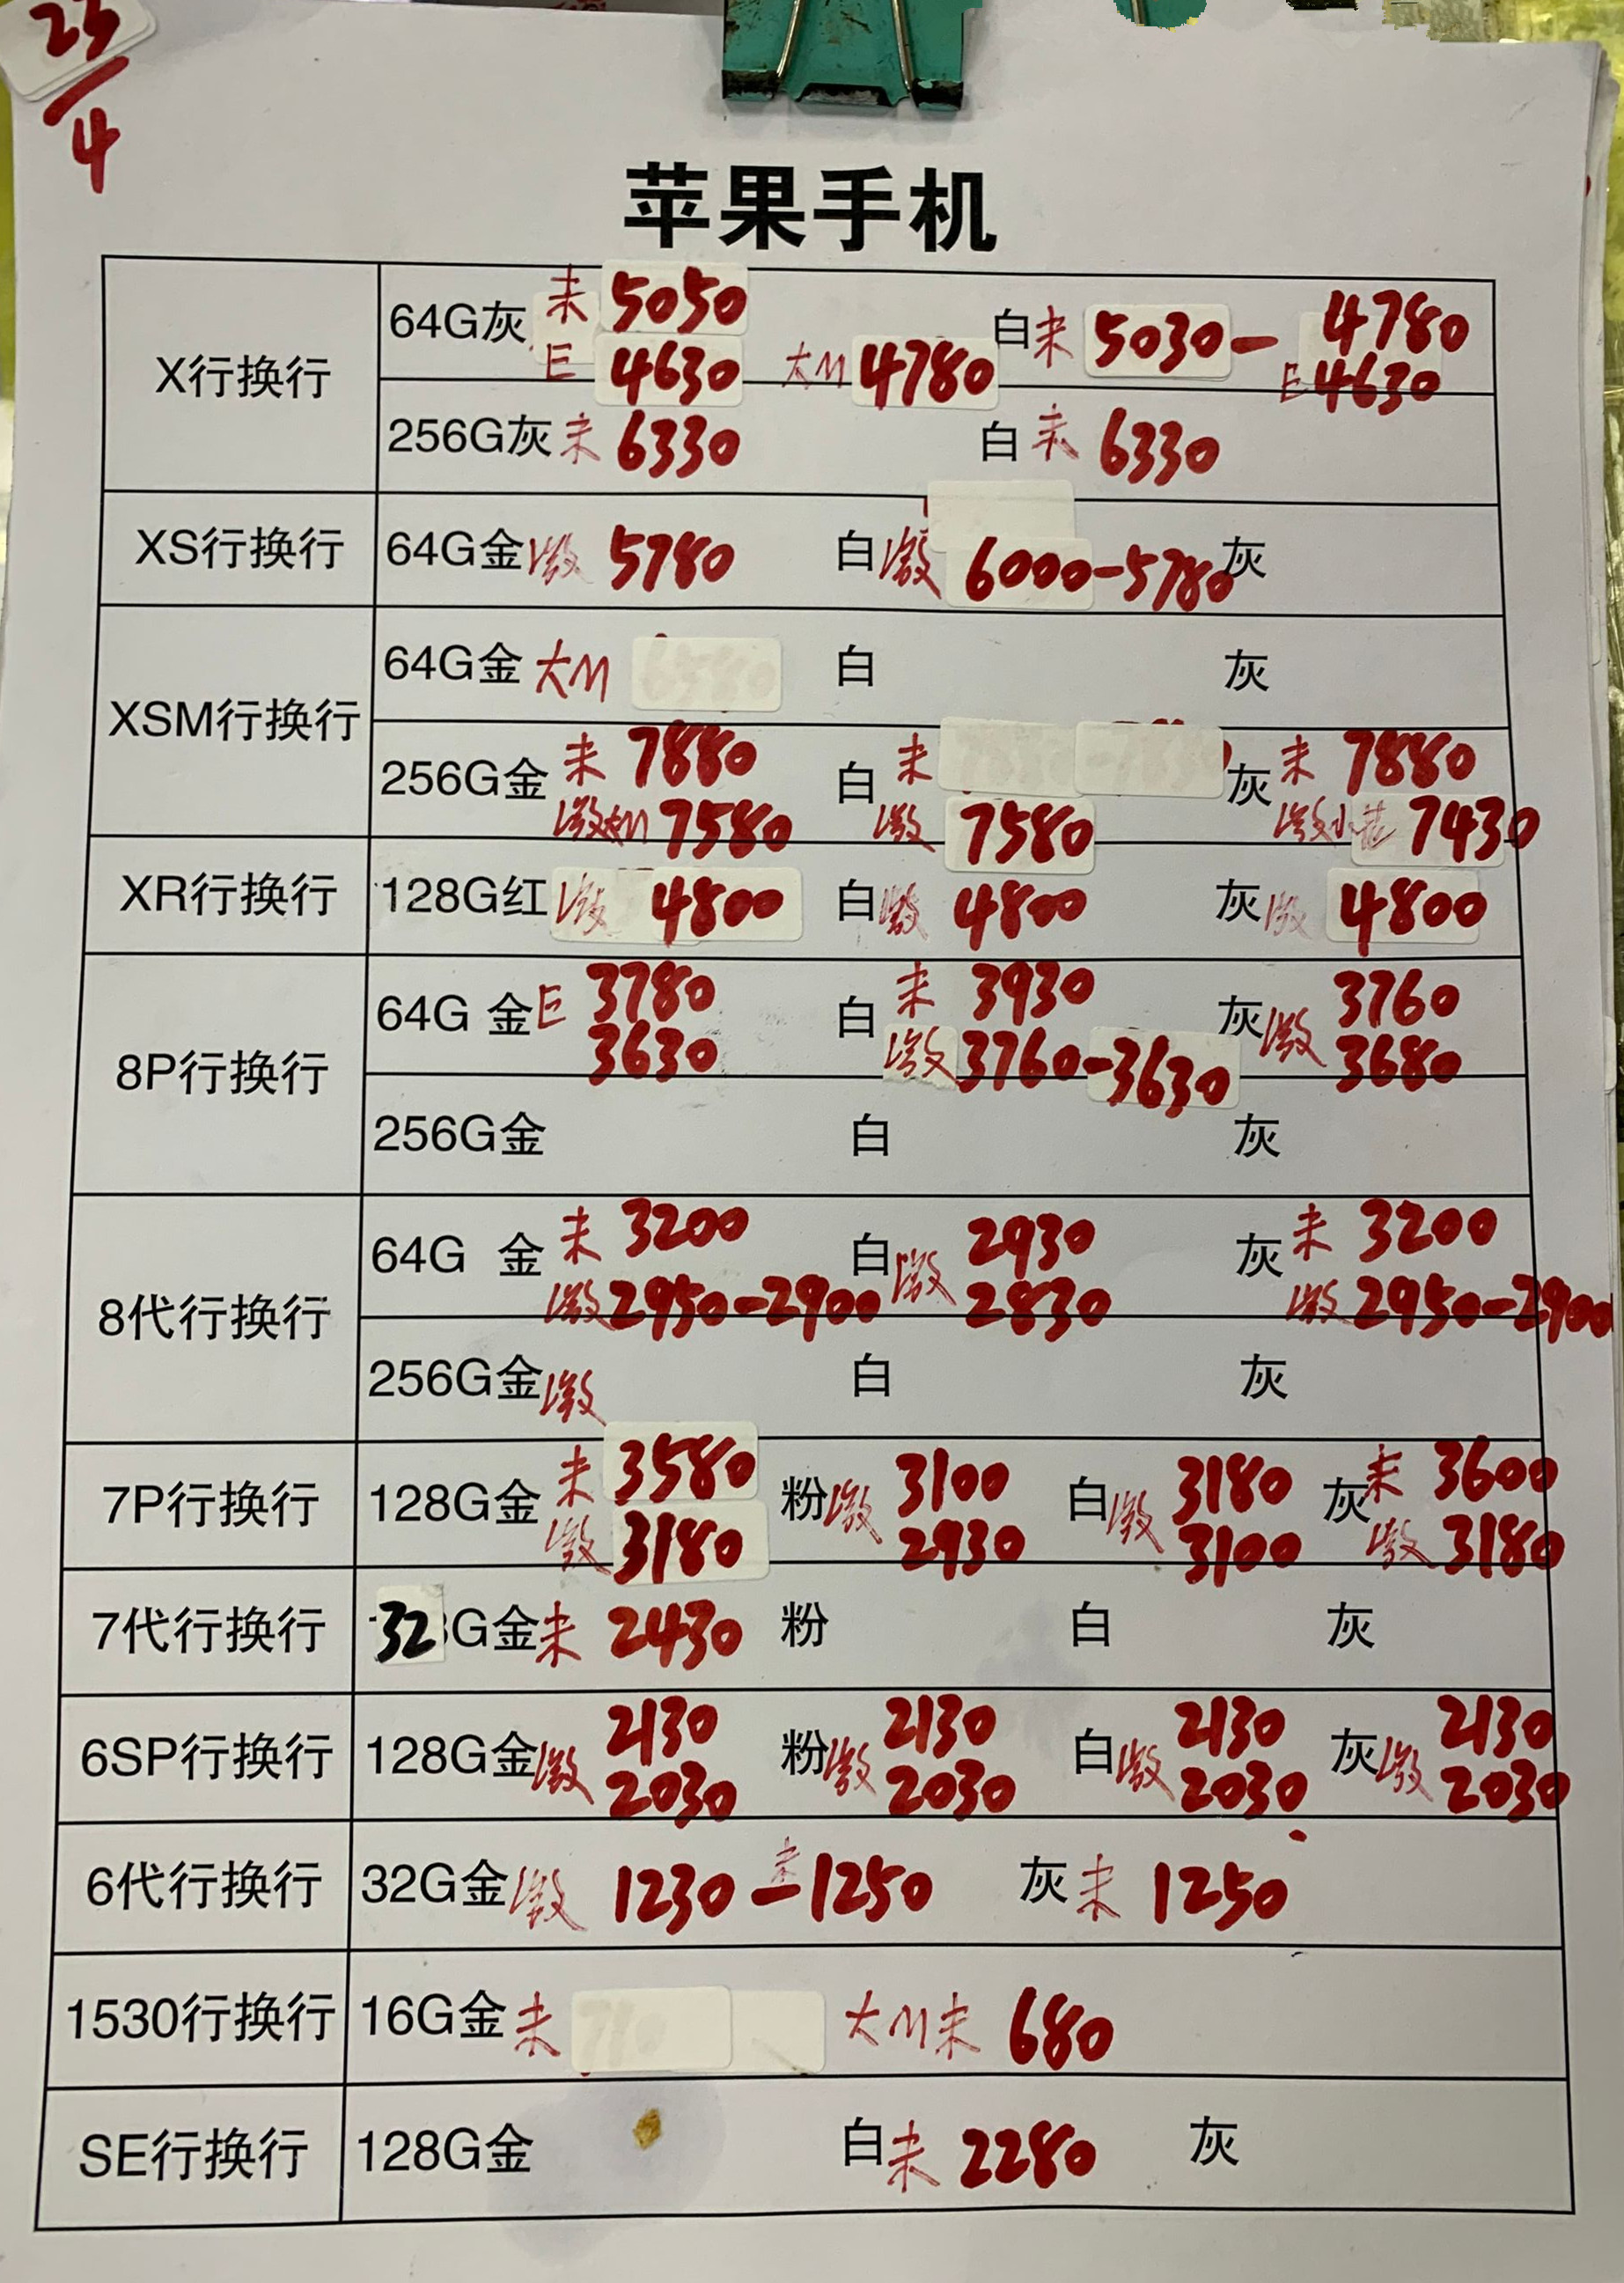 23/4
苹果手机
X行换行 64G灰 未 5050 白 未 5030-4780
E 4630 大M 4780 E 4630
256G灰 未 6330 白 未 6330
XS行换行 64G金 激 5780 白 激 6000-5780 灰
XSM行换行 64G金 大M 白 灰
256G金 未 7880 白 未 灰 未 7880
激大M 7580 激 7580 激小花 7430
XR行换行 128G红 激 4800 白 激 4800 灰 激 4800
8P行换行 64G 金 E 3780 白 未 3930 灰 激 3760
3630 激 3760-3630 3680
256G金 白 灰
8代行换行 64G 金 未 3200 白 激 2930 灰 未 3200
激 2950-2900 2830 激 2950-2900
256G金 激 白 灰
7P行换行 128G金 未 3580 粉 激 3100 白 激 3180 灰 未 3600
激 3180 2930 3100 激 3180
7代行换行 32G金 未 2430 粉 白 灰
6SP行换行 128G金 激 2130 粉 激 2130 白 激 2130 灰 激 2130
2030 2030 2030 2030
6代行换行 32G金 激 1230-未 1250 灰 未 1250
1530行换行 16G金 未 大M未 680
SE行换行 128G金 白 未 2280 灰